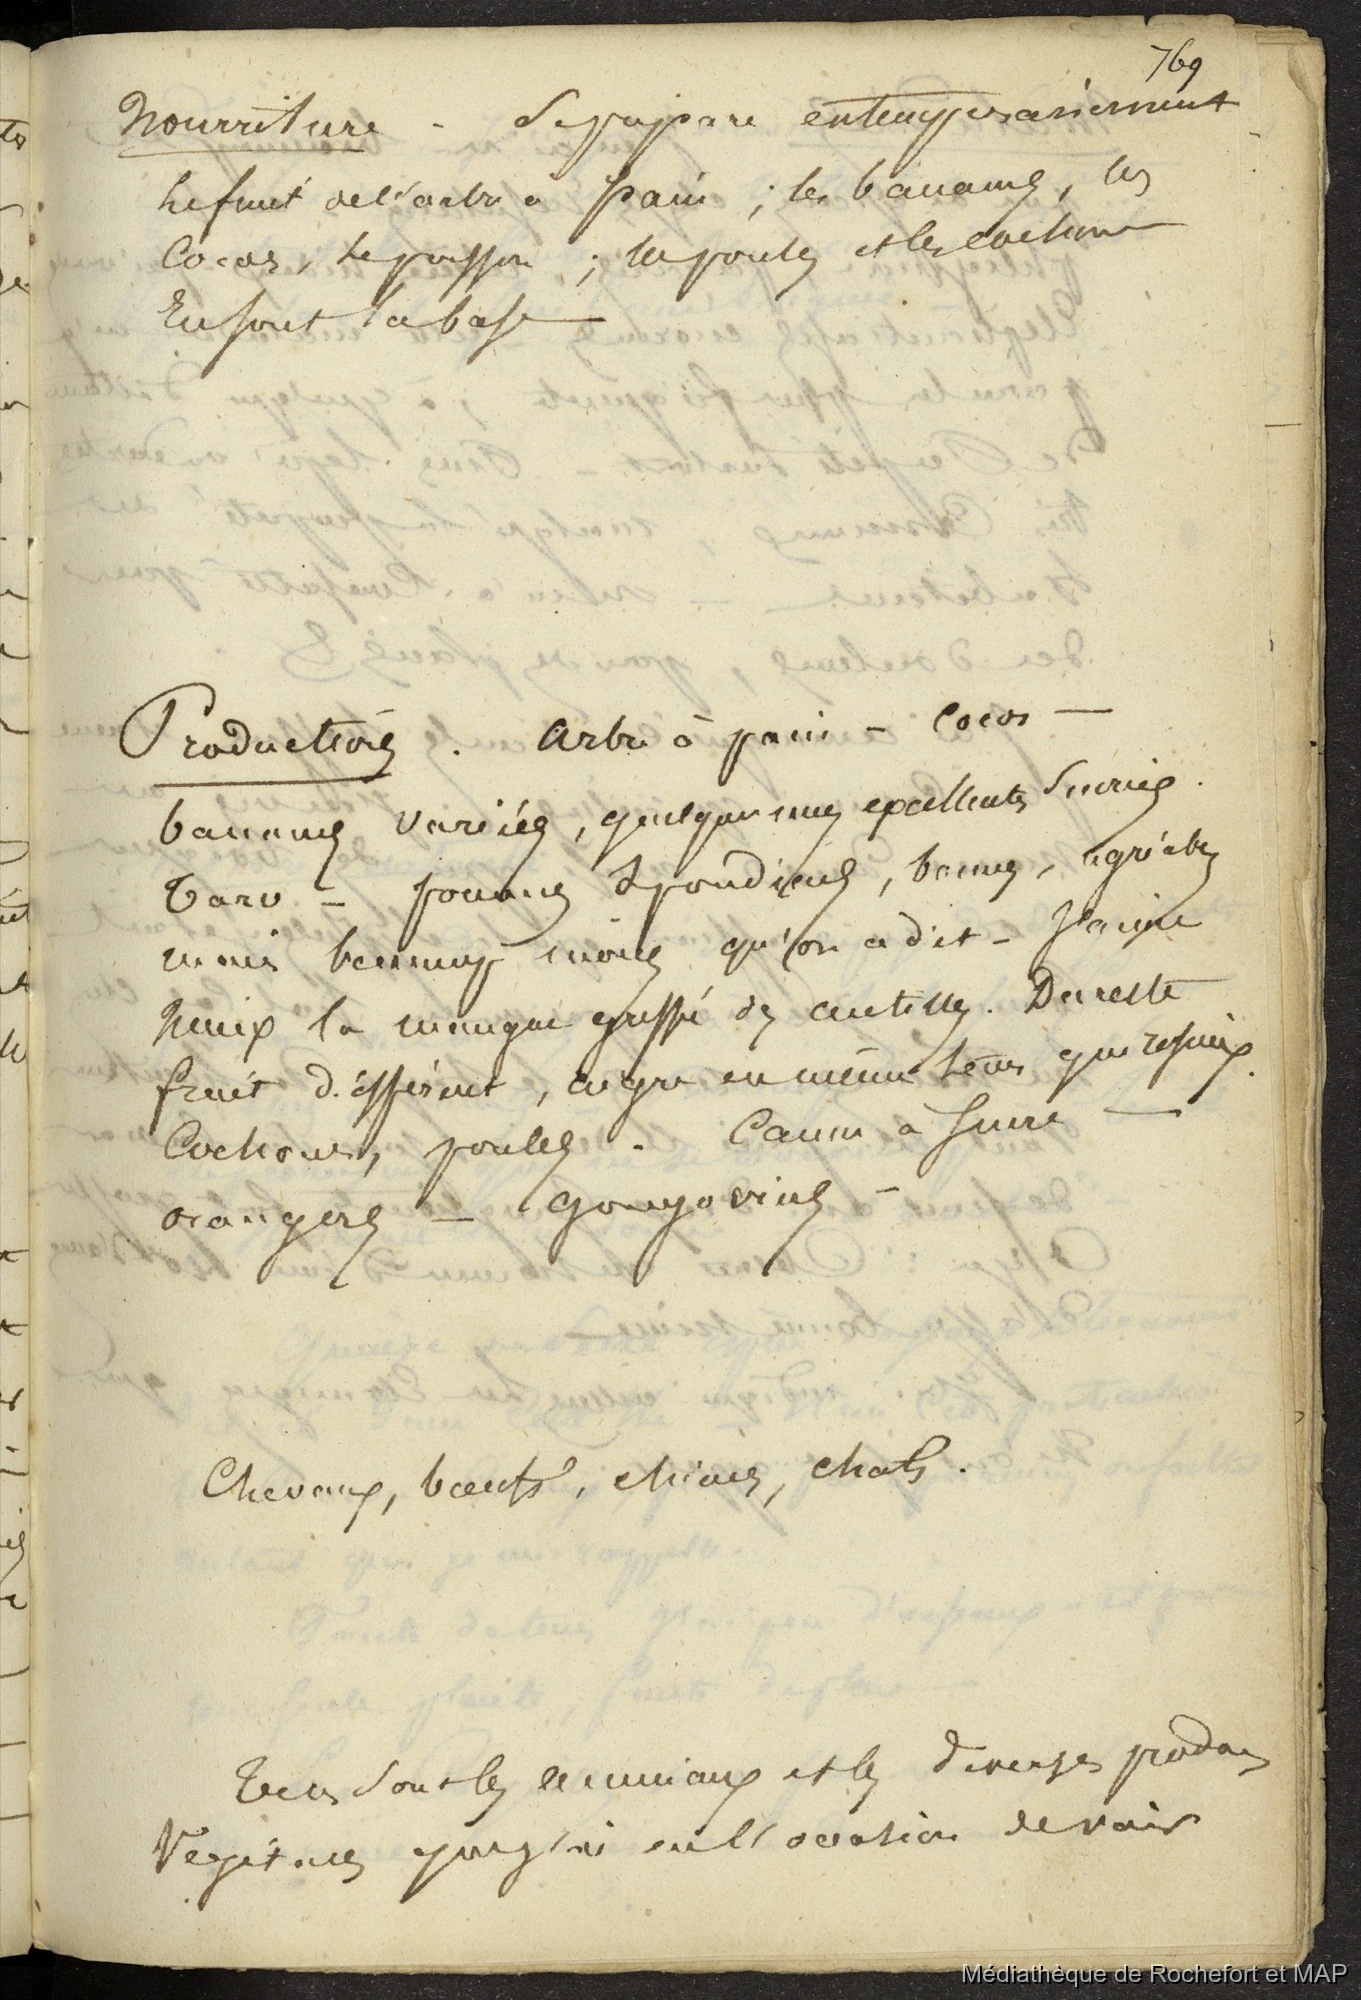 769
Nourriture - Se prépare
le fruit de l'arbre à pain ; les bananes, les
Cocos, le poisson ; les poules et les cochons
En font la base —
Productions . Arbre à pain - Cocos —
bananes variées, quelques unes excellentes Sucrées.
Taro - pommes , bonnes, agréables
mais beaucoup moins qu'on a dit - J'aime
Mieux la mangue greffée des antilles. Du reste
fruit différent, aigre en même tems que
Cochons, poules . Canne à Sucre —
orangers — goyaviers —
Chevaux, bœufs, chiens, chats.
Tels sont les animaux et les diverses prodons
Végétales que j'ai eu l'occasion de voir
Médiathèque de Rochefort et MAP